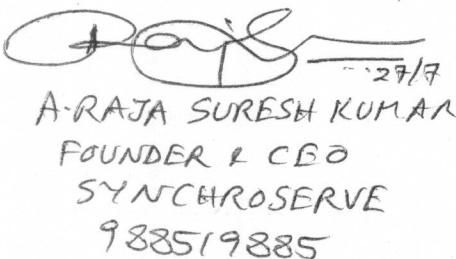 27/7
A.RAJA SURESH KUMAR
FOUNDER & CEO
SYNCHROSERVE
988519885